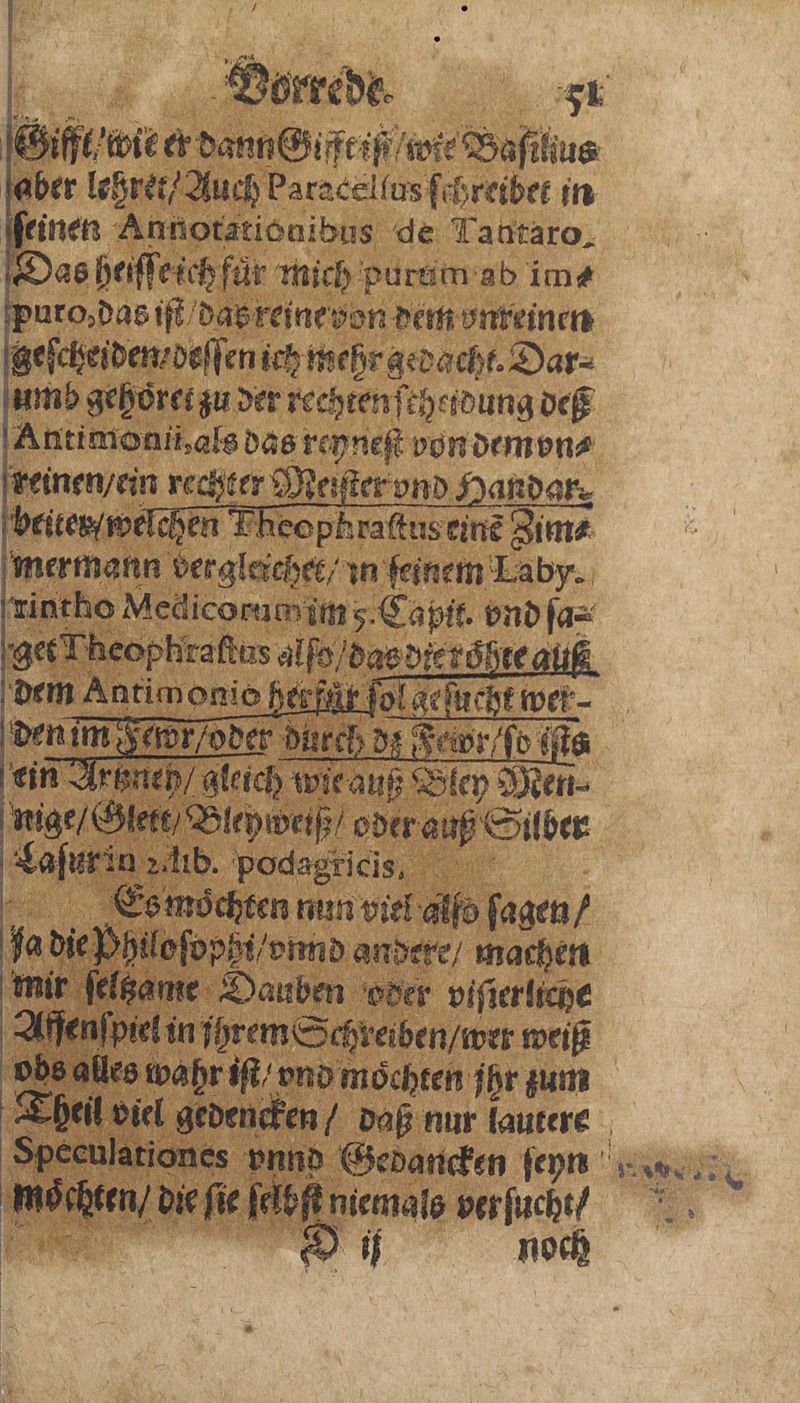 Vorrede. 51
Gifft/ wie er dann Gifft ist/ wie Basilius
aber lehret/ Auch Paracelsus schreibet in
seinen Annotationibus de Tantaro.
Das heisse ich für mich purum ab im⸗
puro, das ist/ das reine von dem vnreinen
gescheiden/ dessen ich mehr gedacht. Dar⸗
umb gehöret zu der rechten scheidung deß
Antimonii, als das reynest von dem vn⸗
reinen/ ein rechter Meister vnd Handar⸗
beiter/ welchen Theophrastus einē Zim⸗
mermann vergleichet/ in seinem Laby⸗
rintho Medicorum im 5. Capit. vnd sa⸗
get Theophrastus also/ das die röhte auß
dem Antimonio herfür sol gesucht wer⸗
den im Fewr/ oder durch dz Fewr/ so ists
ein Artzney/ gleich wie auß Bley Men⸗
nige/ Glett/ Bleyweiß/ oder auß Silber
Lasur in 2. lib. podagricis.
Es möchten nun viel also sagen/
ja die Philosophi/ vnnd andere/ machen
mir seltzame Dauben oder visierliche
Affenspiel in jhrem Schreiben/ wer weiß
obs alles wahr ist/ vnd möchten jhr zum
Theil viel gedencken/ daß nur lautere
Speculationes vnnd Gedancken seyn
möchten/ die sie selbst niemals versucht/
D ij noch